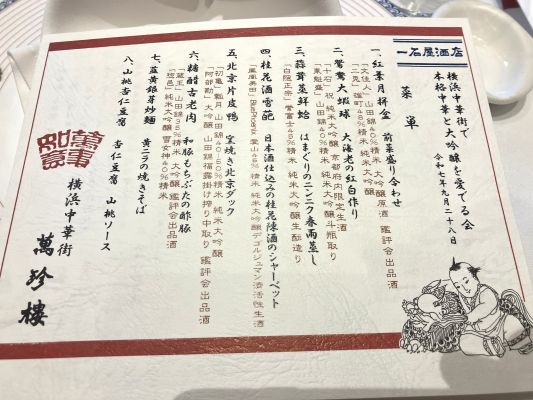 一石屋酒店
横浜中華街で
本格中華と大吟醸を愛でる会
令和七年九月二十八日
菜単
一、紅葉月拼盆 前菜盛り合わせ
「文佳人」山田錦40%精米 純米大吟醸
「三晃」雄町48%精米 純米大吟醸
二、鴛鴦大蝦球 大海老の紅白作り
「十石」祝 純米大吟醸 京都府内限定生酒
「東魁盛」山田錦40%精米 純米大吟醸斗瓶取り
三、蒜茸蒸鮮蛤 はまぐりのニンニク春雨蒸し
「白隠正宗」誉富士45%精米 純米大吟醸生酛造り
四、桂花酒雪葩 日本酒仕込みの桂花陳酒のシャーベット
「鳳凰美田」Blue Phoenix 愛山45%精米 純米大吟醸デゴルジュマン済活性生酒
五、北京片皮鴨 窯焼き北京ダック
「初亀」瓢月 山田錦40%50%精米 純米大吟醸
「阿部勘」大吟醸 山田錦福露掛け搾り中取り 鑑評会出品酒
六、糖醋古老肉 和豚もちぶたの酢豚
「蔵王」山田錦35%精米 大吟醸 鑑評会出品酒
七、韮黄銀芽炒麺 黄ニラの焼きそば
八、山桃杏仁豆腐 杏仁豆腐 山桃ソース
萬事如意
横浜中華街
萬珍樓